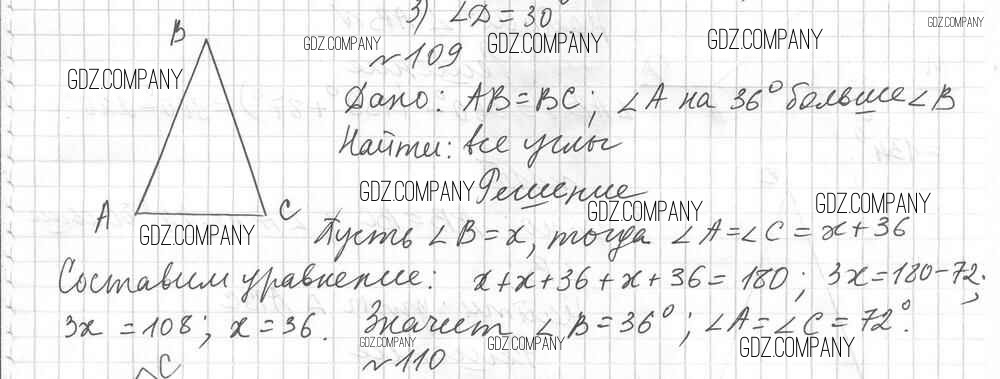 3) ∠D = 30°
GDZ.COMPANY
№109
GDZ.COMPANY
GDZ.COMPANY
GDZ.COMPANY
B
GDZ.COMPANY
Дано: AB=BC; ∠A на 36° больше ∠B
Найти: все углы
GDZ.COMPANY
Решение
GDZ.COMPANY
GDZ.COMPANY
A
C
GDZ.COMPANY
Пусть ∠B=x, тогда ∠A=∠C=x+36
Составим уравнение: x+x+36+x+36=180; 3x=180-72;
3x=108; x=36. Значит ∠B=36°; ∠A=∠C=72°.
GDZ.COMPANY
GDZ.COMPANY
GDZ.COMPANY
№110
C